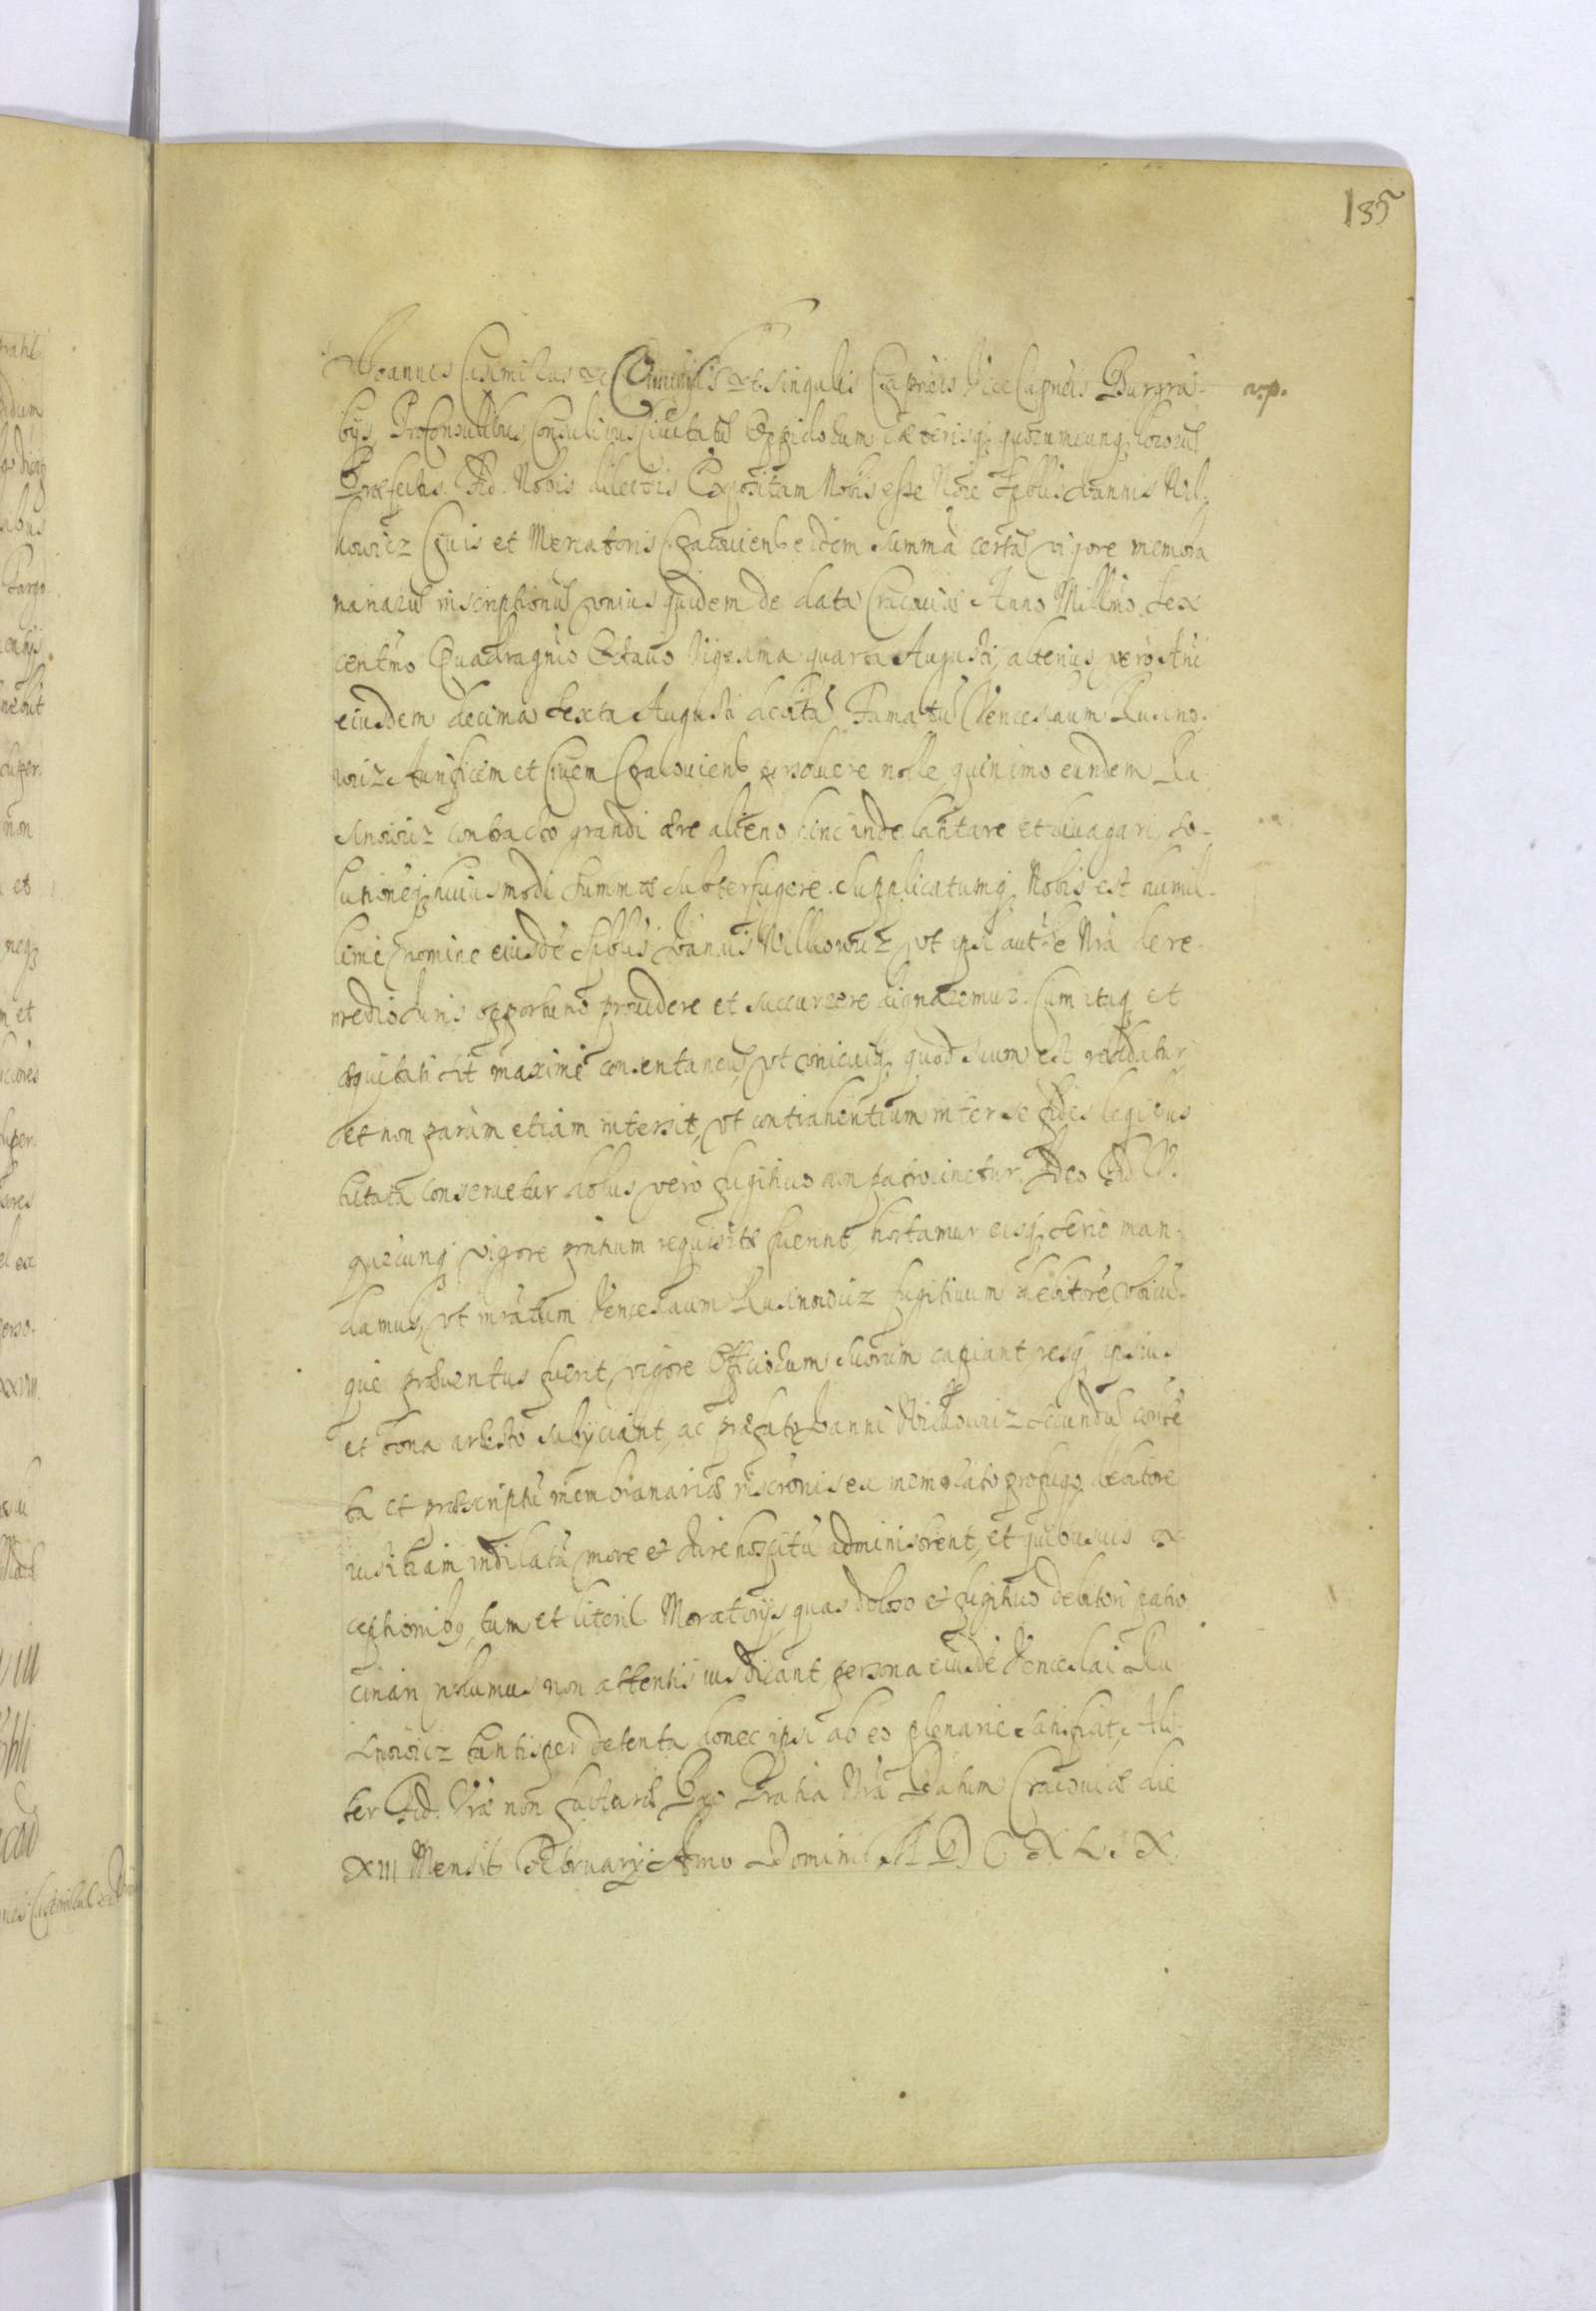 135
Joannes Casimirus etc Omnibus et singulis Capneis Vice Capneis Burgra-
a.p.
bijs, Proconsulibus, Consulibus Ciuitatū Oppidorum caeterisq quorumcunq locorū
Praefectis. Fid. Nobis dilectis Expositam Nobis esse Noīe Spblis Joannis Wil-
howicz Ciuis et Mercatoris Cracouien eidem summā certā vigore membra
nanarū inscriptionū vnius quidem de data Cracouiae Anno Millmo Sex
centmo Quadragmo Octauo Vigesima quarta Augusti, alterius vero Ani
eiusdem decima sexta Augusti debitā Famatū Venceslaum Rusino-
wicz Aurificem et Ciuem Cracouien persoluere nolle, quinimo eundem Ru-
sinowicz contracto grandi aere alieno hinc inde latitare et diuagari, so-
lutionēq huiusmodi summae subterfugere. Supplicatumq Nobis est humil-
lime nomine eiusdē Spblis Joannis Wilhowicz vt ipsi autte Nrā de re-
medio Juris opportuno prouidere et succurrere dignaremur. Cum itaq et
aequitati sit maxime consentaneū, vt vnicuiq quod suum est reddatur,
et non parum etiam intersit, vt contrahentium inter se fides legibus
tutata conseruetur dolus vero fugitiuo non patrocinetur. Ideo Fid. V.
quaecunq vigore pntium requisitae fuerint, hortamur eisq serio man-
damus, vt infratum Venceslaum Rusinowicz fugitiuum debitorē vbicū-
que prouentus fuerit, vigore Officiorum suorum capiant, resq ipsius
et bona aresto subijciant, ac praefato Joanni Wilhowicz secundū contē
ta et praescriptū membranariae inscronis ex memorato profugo debitore
iustitiam indilatā more et Jure hospitū administrent, et quibusuis ex-
ceptionibq, tum et literis Moratorijs, quas doloso et fugitiuo debitori patro
cinari nolumus non attentis ius dicant, persona eiusdē Venceslai Ru
sinowicz tantisper detenta donec ipsi ab eo plenarie satisfiat. Ali
ter Fid. Vrae non facturae Pro Gratia Nrā Datum Cracouiae die
XIII Mensis February Anno Domini M D C X L I X